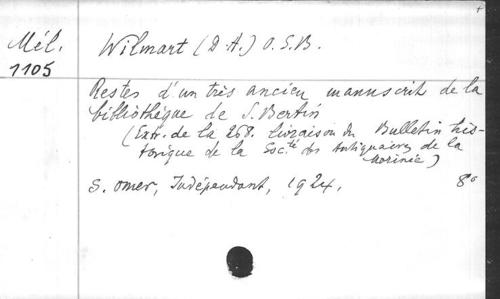 Mél. Wilmart (D. A.) O. S. B.
1105
Restes d'un très ancien manuscrit de la
bibliothèque de S. Bertin
(Extr. de la 268. livraison du Bulletin his-
torique de la Soc.té des Antiquaires de la
Morinie)
S. Omer, Indépendant, 1924. 8°